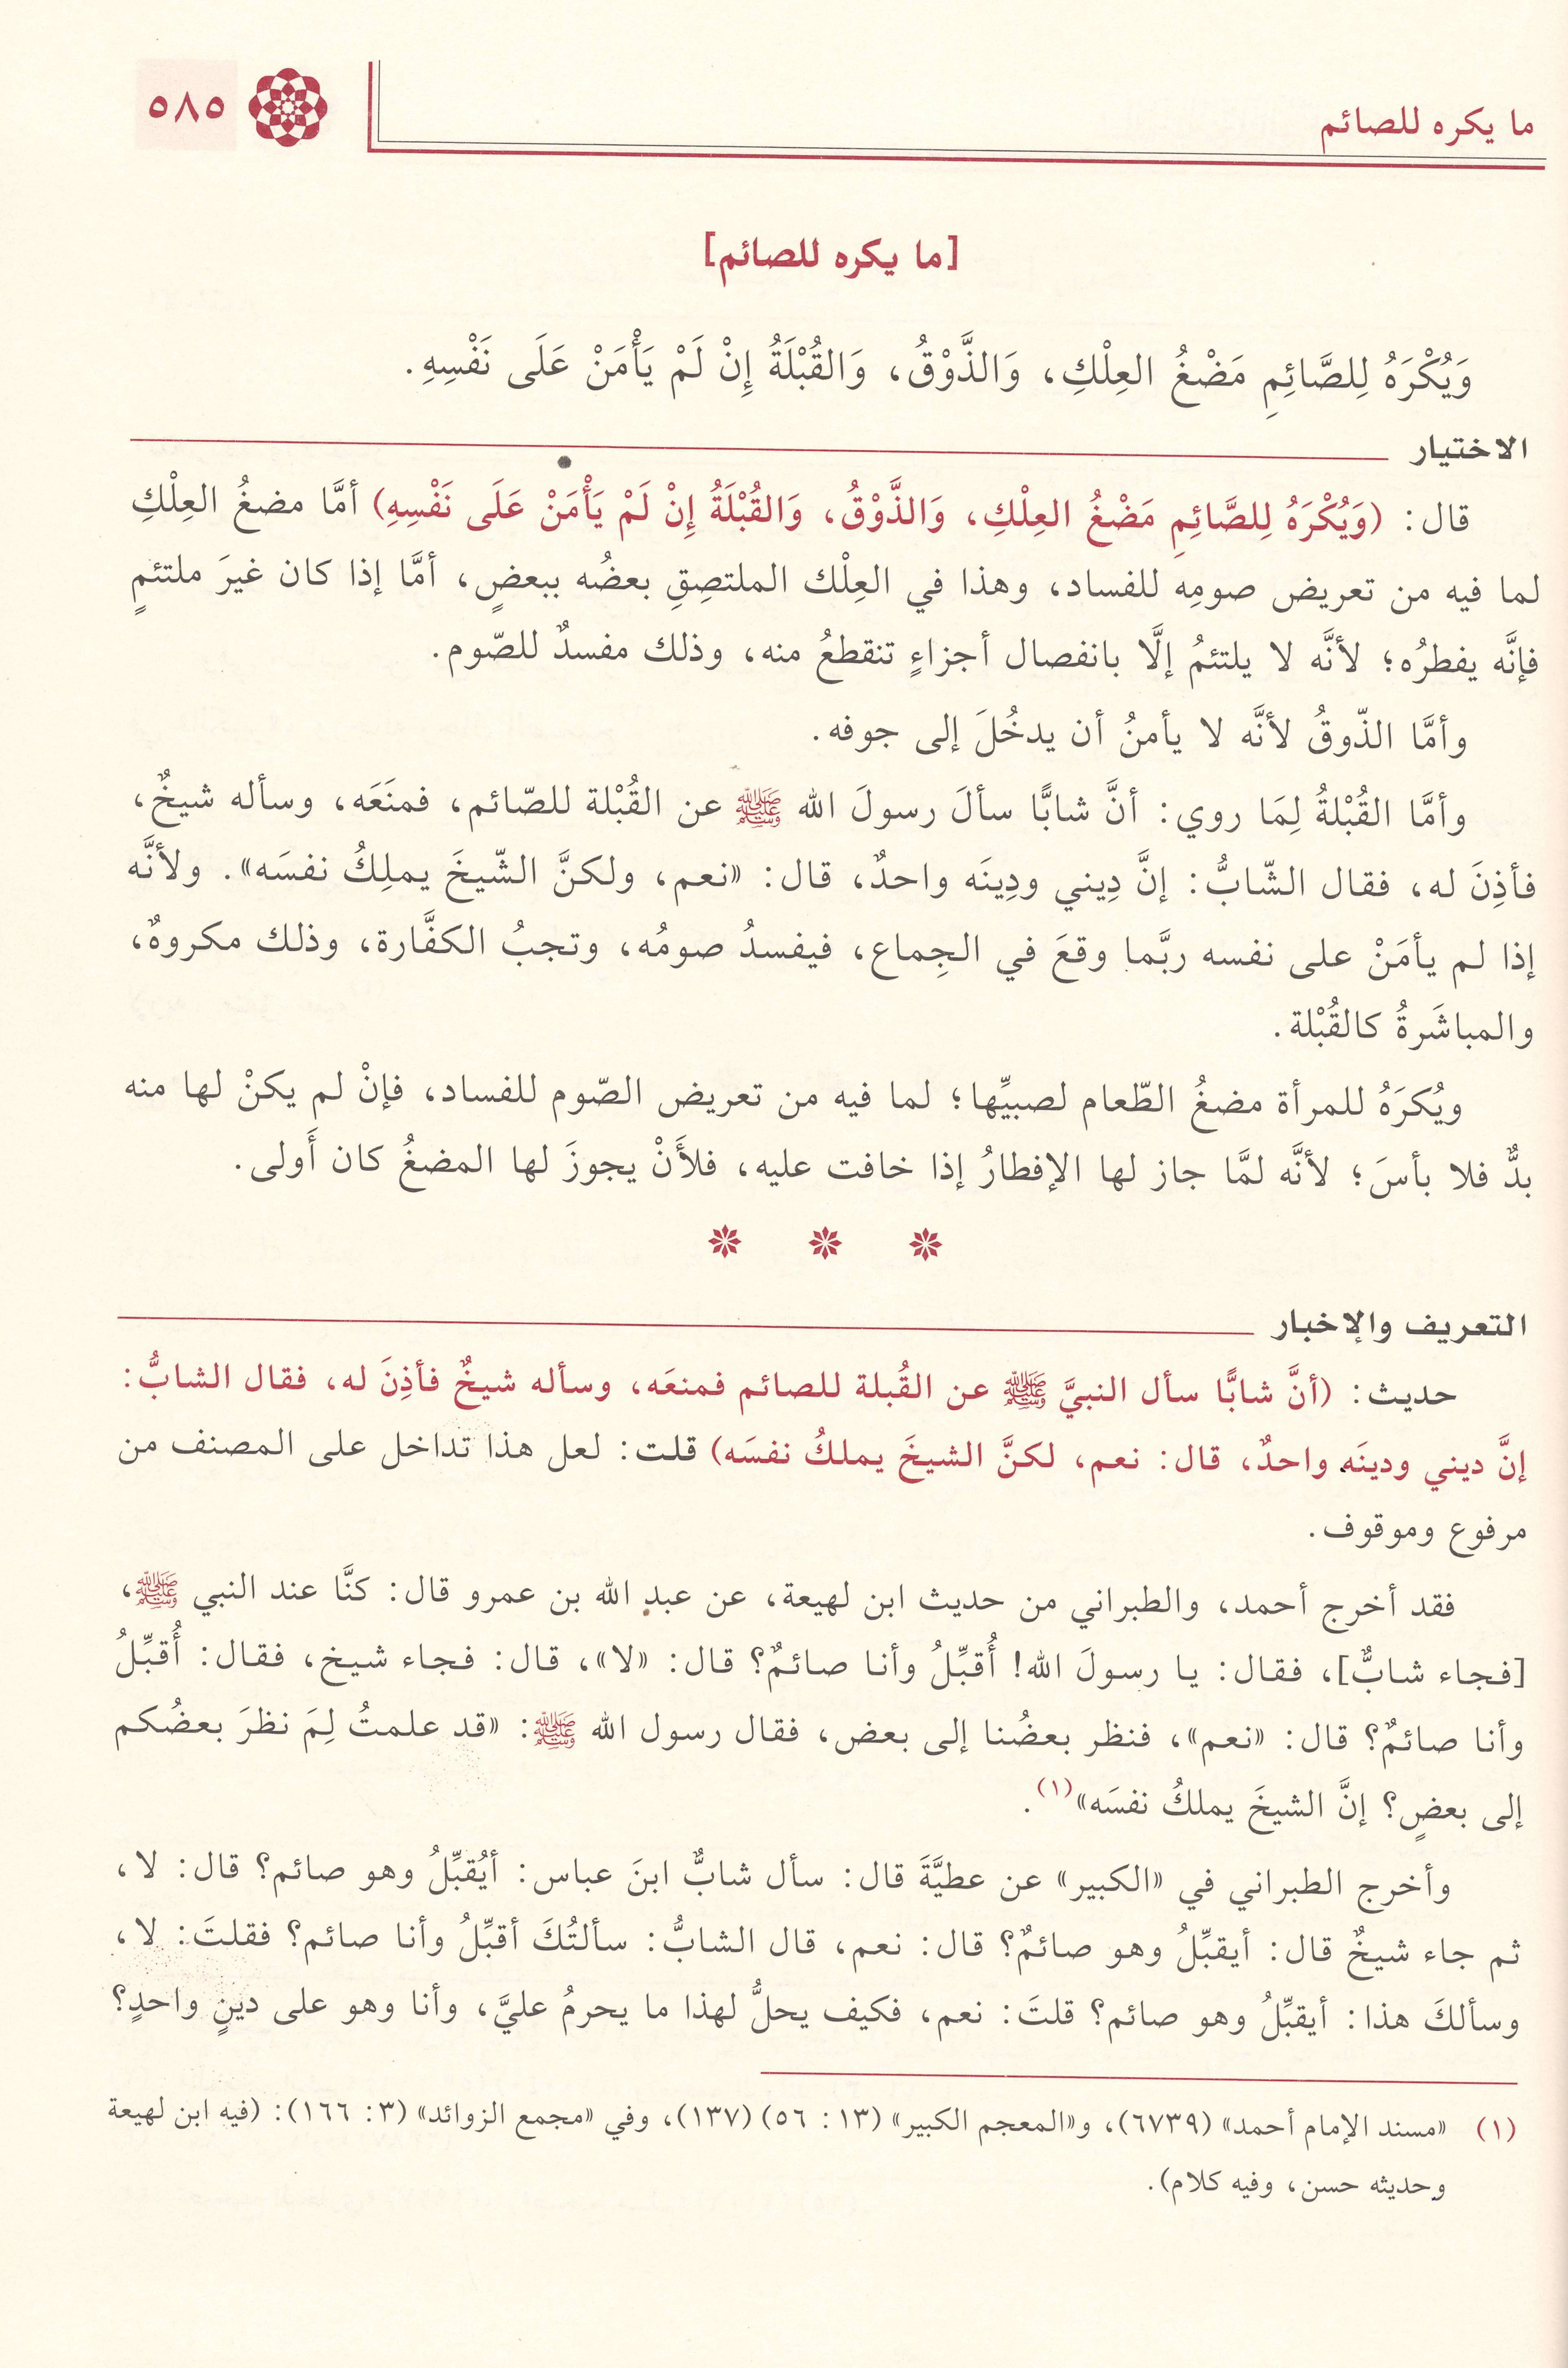 ما يكره للصائم
٥٨٥
[ما يكره للصائم]
وَيُكْرَهُ لِلصَّائِمِ مَضْغُ العِلْكِ، وَالذَّوْقُ، وَالقُبْلَةُ إِنْ لَمْ يَأْمَنْ عَلَى نَفْسِهِ.
الاختيار
قال: (وَيُكْرَهُ لِلصَّائِمِ مَضْغُ العِلْكِ، وَالذَّوْقُ، وَالقُبْلَةُ إِنْ لَمْ يَأْمَنْ عَلَى نَفْسِهِ) أمَّا مضغُ العِلْكِ
لما فيه من تعريض صومِه للفساد، وهذا في العِلْك الملتصِقِ بعضُه ببعضٍ، أمَّا إذا كان غيرَ ملتئمٍ
فإنَّه يفطرُه؛ لأنَّه لا يلتئمُ إلَّا بانفصال أجزاءٍ تنقطعُ منه، وذلك مفسدٌ للصّوم.
وأمَّا الذّوقُ لأنَّه لا يأمنُ أن يدخُلَ إلى جوفه.
وأمَّا القُبْلةُ لِمَا روي: أنَّ شابًّا سألَ رسولَ الله ﷺ عن القُبْلة للصّائم، فمنَعَه، وسأله شيخٌ،
فأذِنَ له، فقال الشّابُّ: إنَّ دِيني ودِينَه واحدٌ، قال: «نعم، ولكنَّ الشّيخَ يملِكُ نفسَه». ولأنَّه
إذا لم يأمَنْ على نفسه ربَّما وقعَ في الجِماع، فيفسدُ صومُه، وتجبُ الكفَّارة، وذلك مكروهٌ،
والمباشَرةُ كالقُبْلة.
ويُكرَهُ للمرأة مضغُ الطّعام لصبيِّها؛ لما فيه من تعريض الصّوم للفساد، فإنْ لم يكنْ لها منه
بدٌّ فلا بأسَ؛ لأنَّه لمَّا جاز لها الإفطارُ إذا خافت عليه، فلأَنْ يجوزَ لها المضغُ كان أَولى.
التعريف والإخبار
حديث: (أنَّ شابًّا سأل النبيَّ ﷺ عن القُبلة للصائم فمنعَه، وسأله شيخٌ فأذِنَ له، فقال الشابُّ:
إنَّ ديني ودينَه واحدٌ، قال: نعم، لكنَّ الشيخَ يملكُ نفسَه) قلت: لعل هذا تداخل على المصنف من
مرفوع وموقوف.
فقد أخرج أحمد، والطبراني من حديث ابن لهيعة، عن عبد الله بن عمرو قال: كنَّا عند النبي ﷺ،
[فجاء شابٌّ]، فقال: يا رسولَ الله! أُقبِّلُ وأنا صائمٌ؟ قال: «لا»، قال: فجاء شيخ، فقال: أُقبِّلُ
وأنا صائمٌ؟ قال: «نعم»، فنظر بعضُنا إلى بعض، فقال رسول الله ﷺ: «قد علمتُ لِمَ نظرَ بعضُكم
إلى بعضٍ؟ إنَّ الشيخَ يملكُ نفسَه»(١).
وأخرج الطبراني في «الكبير» عن عطيَّةَ قال: سأل شابٌّ ابنَ عباس: أيُقبِّلُ وهو صائم؟ قال: لا،
ثم جاء شيخٌ قال: أيقبِّلُ وهو صائمٌ؟ قال: نعم، قال الشابُّ: سألتُكَ أقبِّلُ وأنا صائم؟ فقلتَ: لا،
وسألكَ هذا: أيقبِّلُ وهو صائم؟ قلتَ: نعم، فكيف يحلُّ لهذا ما يحرمُ عليَّ، وأنا وهو على دينٍ واحدٍ؟
(١) «مسند الإمام أحمد» (٦٧٣٩)، و«المعجم الكبير» (١٣: ٥٦) (١٣٧)، وفي «مجمع الزوائد» (٣: ١٦٦): (فيه ابن لهيعة
وحديثه حسن، وفيه كلام).